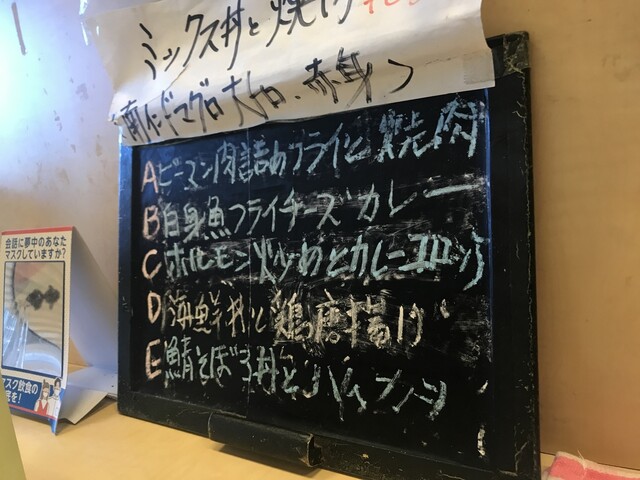 ミックス丼と焼肉
南インドマグロ 大トロ、赤身
Aピーマン肉詰めフライと焼肉
B白身魚フライチーズカレー
Cホルモン炒めとカレーコロッケ
D海鮮丼と鶏唐揚げ
E鯖そぼろ丼とハムカツ
会話に夢中のあなた
マスクしていますか?
マスク飲食の